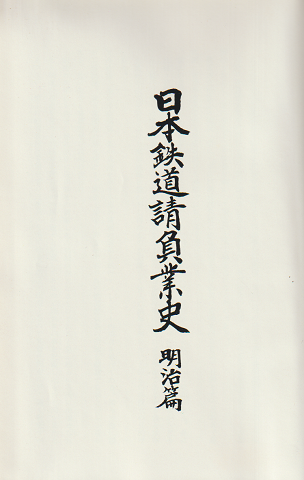 日本鉄道請負業史 明治篇